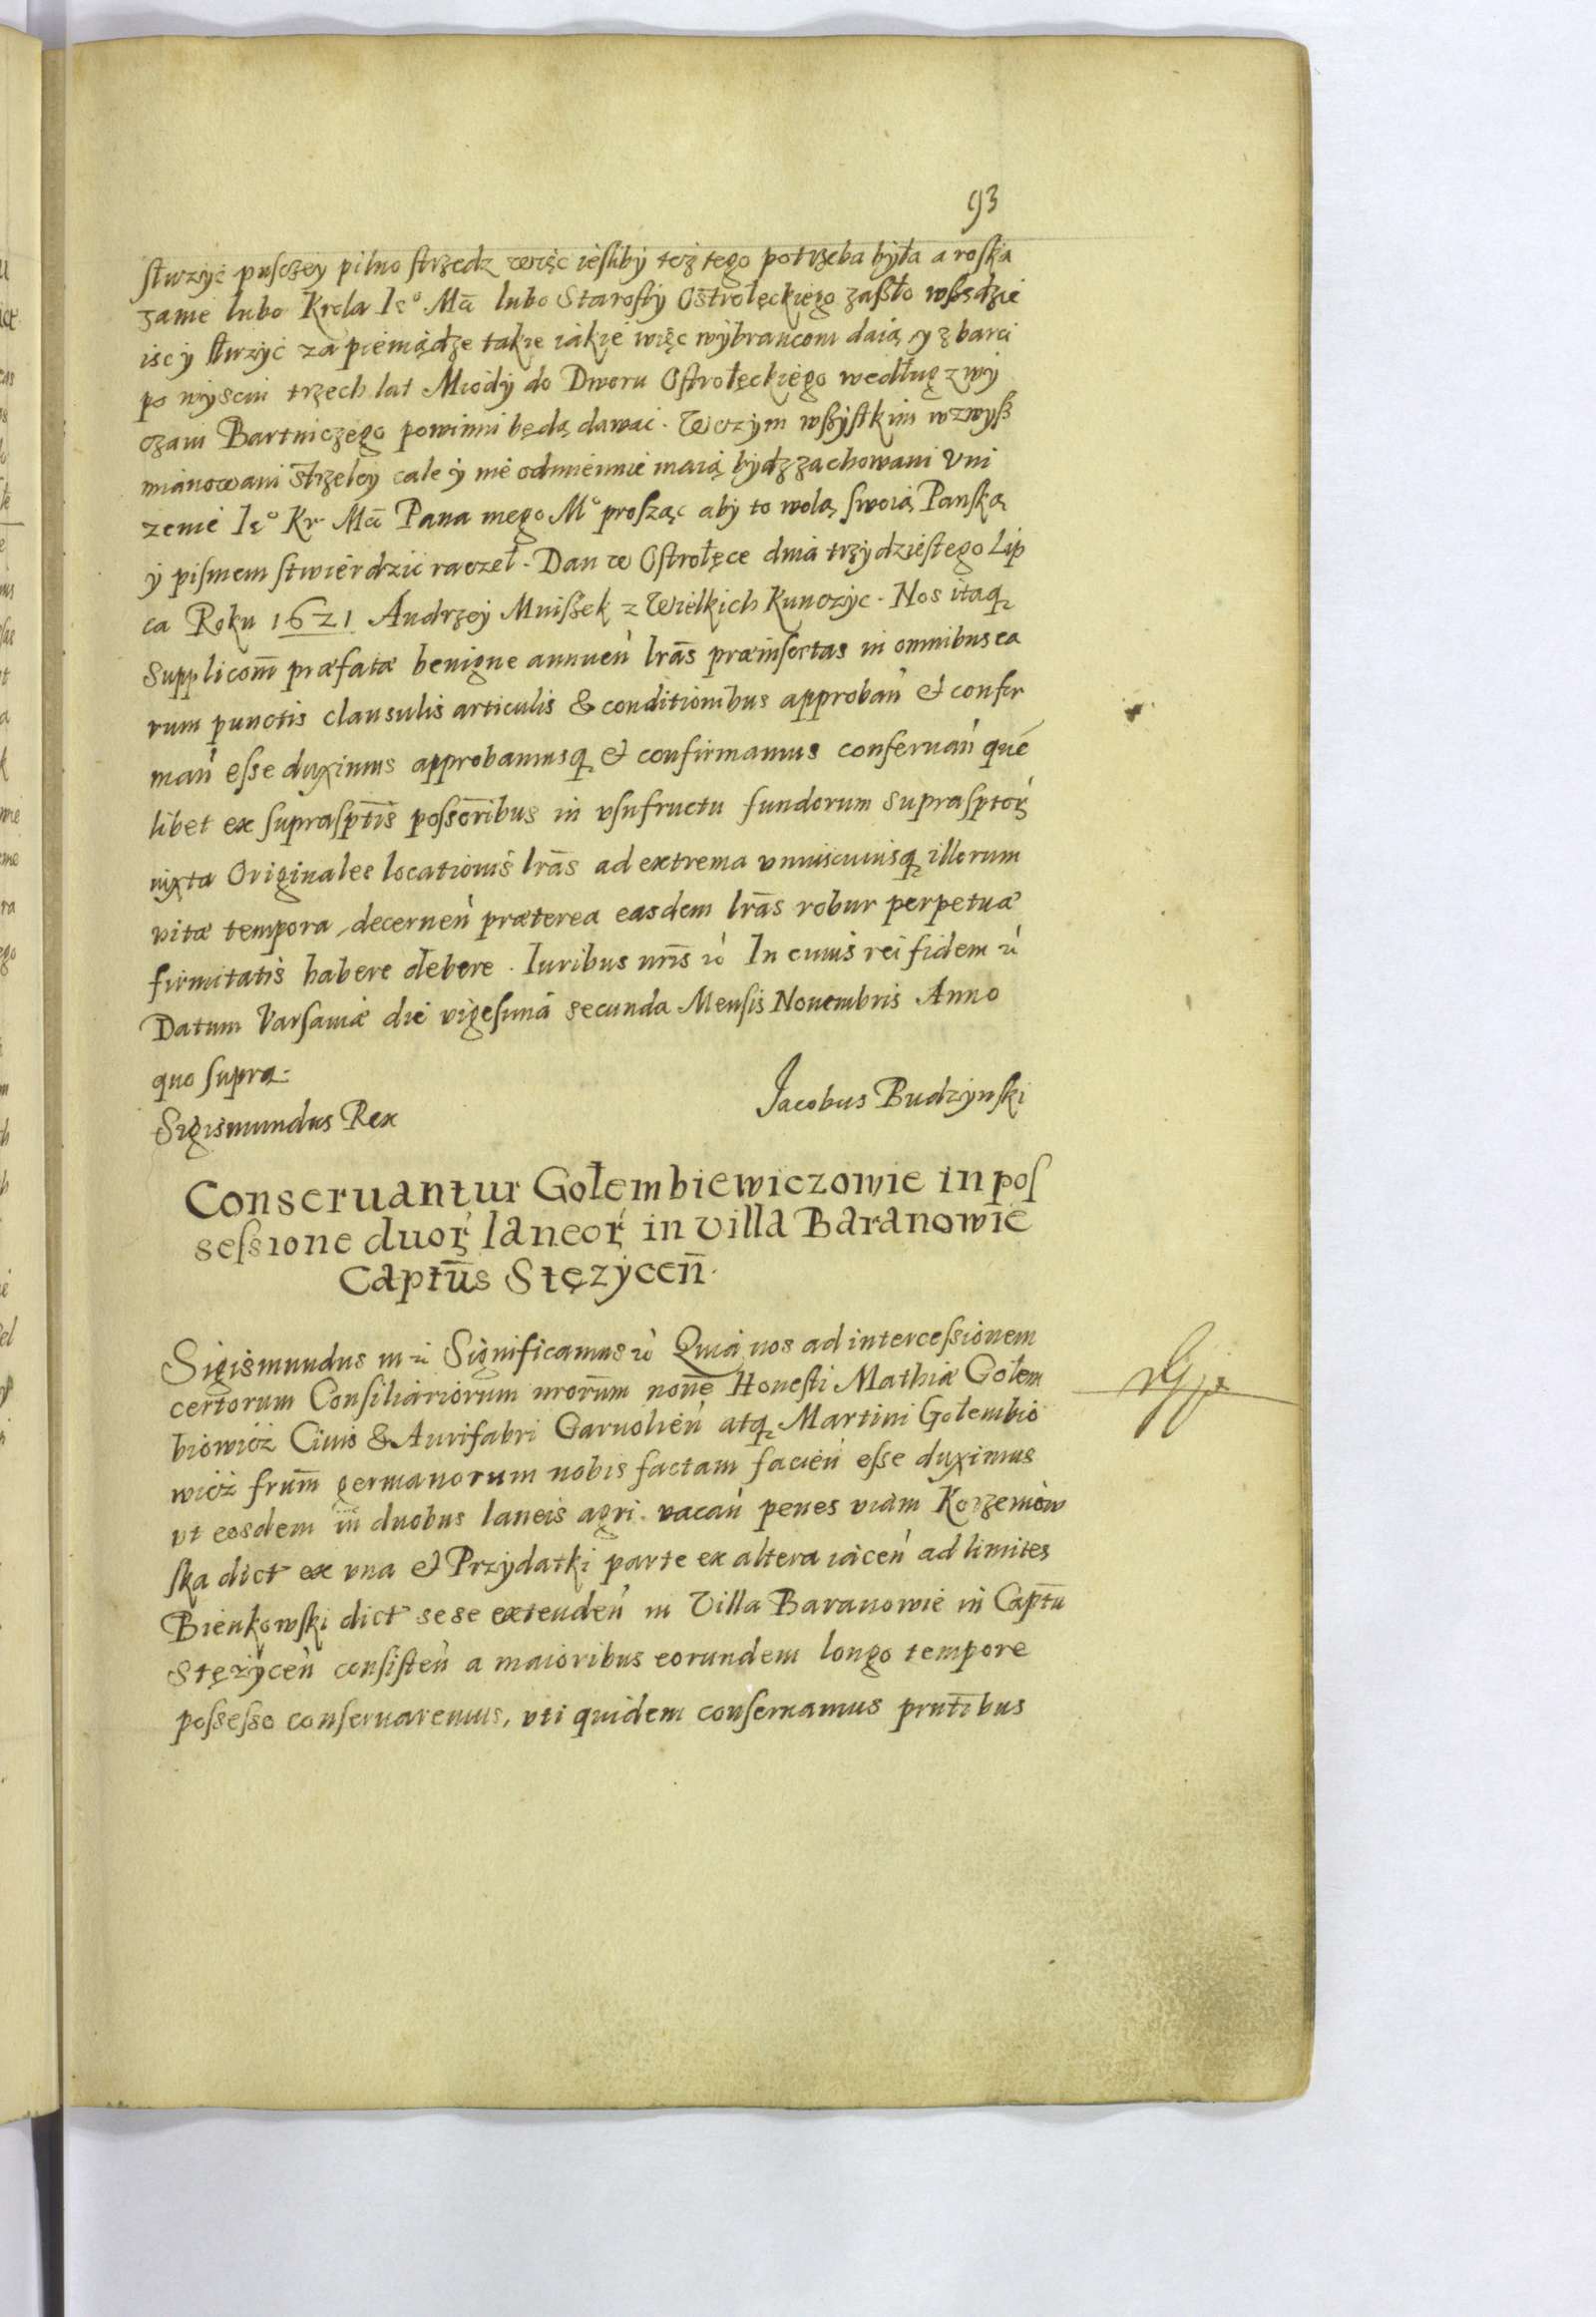 93
słurzyć pusczey pilno strzedz więc iesliby też tego potrzeba była a roska
zanie lubo Krola Ieº Mci lubo Starosty Ostrołęckiego zaszło wszędzie
isc y słurzyć za pieniądze takie iakie więc wybrancom daią, y z barci
po wysciu trzech lat Miody do Dworu Ostrołęckiego według zwy
czaiu Bartniczego powinni będą dawac. W czym wszystkim wzwysz
mianowani strzelcy cale y nie odmiennie maią bydz zachowani Uni
zenie Ieº Kr Mci Pana mego Mº prosząc aby to wolą swoią Panską
y pismem stwierdzić raczeł. Dan w Ostrołęce dnia trzydziestego Lip
ca Roku 1621 Andrzey Mniszek z Wielkich Kunczyc. Nos itaq
Supplicom̄ præfatæ benigne annuen̄ lrās præinsertas in omnibus ea
rum punctis clausulis articulis & conditionibus approban̄ et confir
man̄ esse duximus approbamusq et confirmamus conseruan̄ quem
libet ex suprasptīs possōribus in vsufructu fundorum suprasptor
iuxta Originales locationis lrās ad extrema vniuscuiusq illorum
vitæ tempora, decernen̄ præterea easdem lrās robur perpetuæ
firmitatis habere debere. Iuribus nrīs &c In cuius rei fidem &c
Datum Varsauiæ die vigesima secunda Mensis Nouembris Anno
quo supra.
Sigismundus Rex
Jacobus Budzynski
Conseruantur Gołembiewiczowie in pos
sessione duor laneor in villa Baranowie
Captūs Stęzycen̄.
Sigismundus III &c Significamus &c Quia nos ad intercessionem
certorum Consiliariorum nrorūm noīne Honesti Mathiæ Gołem
biowicz Ciuis & Aurifabri Garuolien̄ atq Martini Gołembio
wicz frūm germanorum nobis factam facien̄ esse duximus
vt eosdem in duobus laneis agri vacan̄ penes viam Korzeniow
ska dict ex vna et Przydatki parte ex altera iacen̄ ad limites
Bienkowski dict sese extenden̄ in Villa Baranowie in Captū
Stężycen̄ consisten̄ a maioribus eorundem longo tempore
possesso conseruaremus, vti quidem conseruamus prntībus